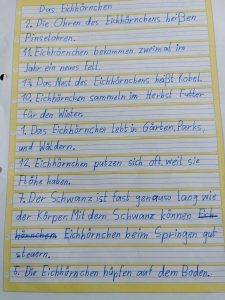 Das Eichhörnchen
2. Die Ohren des Eichhörnchens heißen
Pinselohren.
11. Eichhörnchen bekommen zweimal im
Jahr ein neues Fell.
14. Das Nest des Eichhörnchens heißt Kobel.
10. Eichhörnchen sammeln im Herbst Futter
für den Winter.
1. Das Eichhörnchen lebt in Gärten, Parks,
und Wäldern.
12. Eichhörnchen putzen sich oft, weil sie
Flöhe haben.
7. Der Schwanz ist fast genauso lang wie
der Körper. Mit dem Schwanz können Eich-
hörnchen Eichhörnchen beim Springen gut
steuern.
5. Die Eichhörnchen hüpfen auf dem Boden.